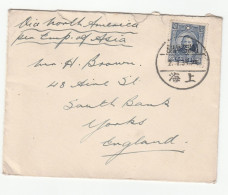 Via North America
per Emp. of Asia
Mrs H. Brown.
43 Aire St
South Bank
Yorks
England.
上海